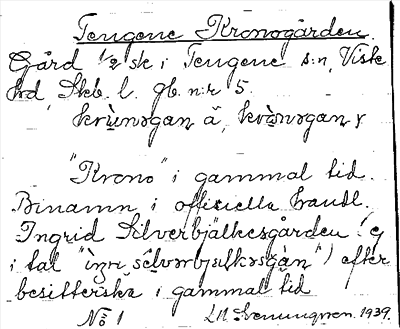 Tengene Kronogården.
Gård 1/2 sk i Tengene s:n, Viste
hrd, Skb. l. Jb. n:r 5.
krùnɔgan ä, kvànɔgan y
"Krono" i gammal tid.
Binamn i officiella handl.
Ingrid Silverbjälkesgården (ej
i tal "ìŋrı sêlvərbjælkəsgàn") efter
besitterska i gammal tid
No 1 LH. Svenungsson. 1939.